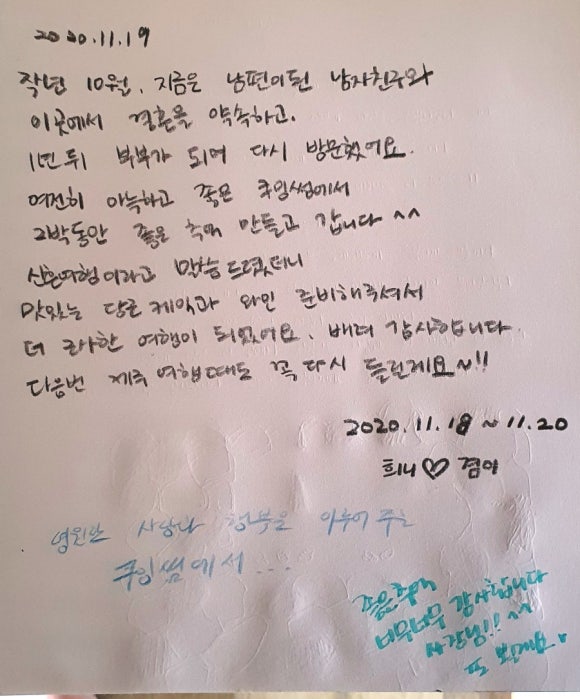 2020.11.19
작년 10월, 지금은 남편이 된 남자친구와
이곳에서 결혼을 약속하고.
1년 뒤 부부가 되어 다시 방문했어요.
여전히 아늑하고 좋은 쿠잉썸에서
2박동안 좋은 추억 만들고 갑니다 ^^
신혼여행이라고 말씀드렸더니
맛있는 당근 케익과 와인 준비해주셔서
더 근사한 여행이 되었어요. 배려 감사합니다.
다음번 제주 여행때도 꼭 다시 들릴게요~!!
2020.11.18 ~ 11.20
희니♡겸이
영원한 사랑과 행복을 이루어 주는
쿠잉썸에서 ...
좋은추억
너무너무 감사합니다
사장님!! ^^
또 올게요.